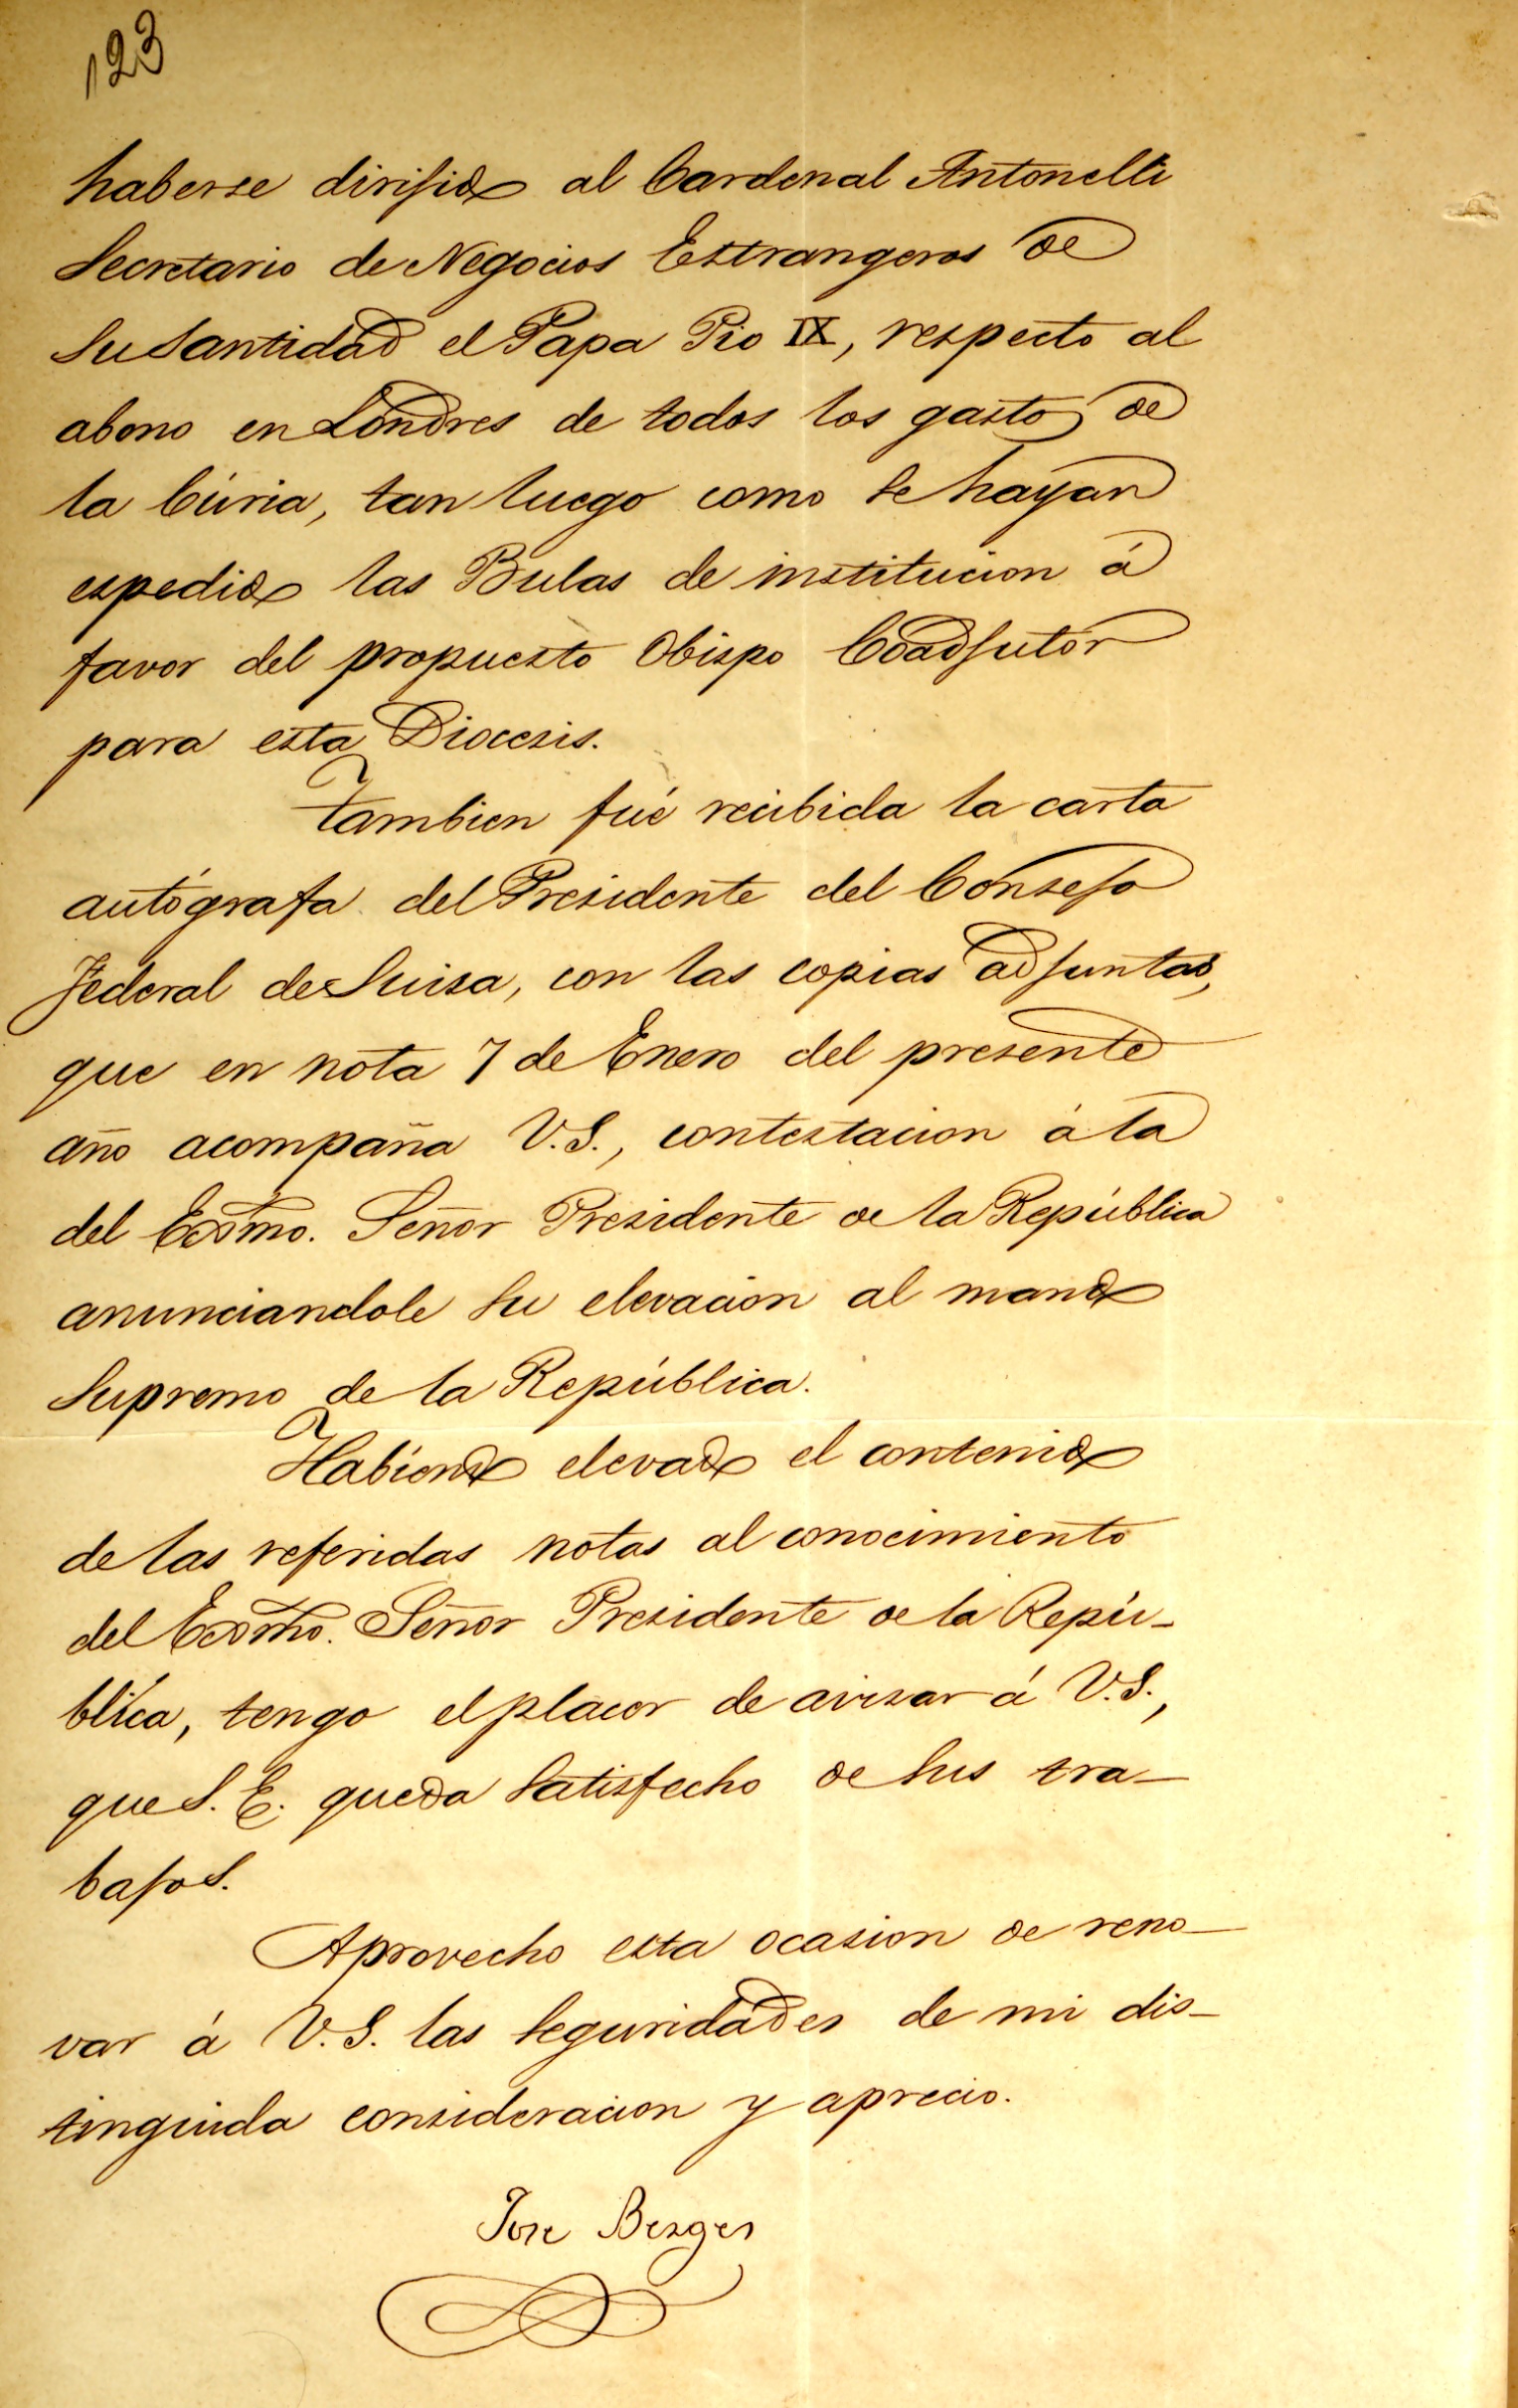 123
haberse dirijido al Cardenal Antonelli
Secretario de Negocios Estrangeros de
Su Santidad el Papa Pio IX, respecto al
abono en Londres de todos los gastos de
la Cúria, tan luego como se hayan
espedido las Bulas de institucion á
favor del propuesto Obispo Coadjutor
para esta Diocesis.
Tambien fué recibida la carta
autógrafa del Presidente del Consejo
Federal de Suisa, con las copias adjuntas,
que en nota 7 de Enero del presente
año acompaña V.S., contestacion á la
del Exmo. Señor Presidente de la República
anunciandole su elevacion al mando
Supremo de la República.
Habiendo elevado el contenido
de las referidas notas al conocimiento
del Exmo. Señor Presidente de la Repú-
blica, tengo el placer de avisar á V.S.,
que S. E. queda satisfecho de sus tra-
bajos.
Aprovecho esta ocasion de reno-
var á V.S. las seguridades de mi dis-
tinguida consideracion y aprecio.
Jose Berges